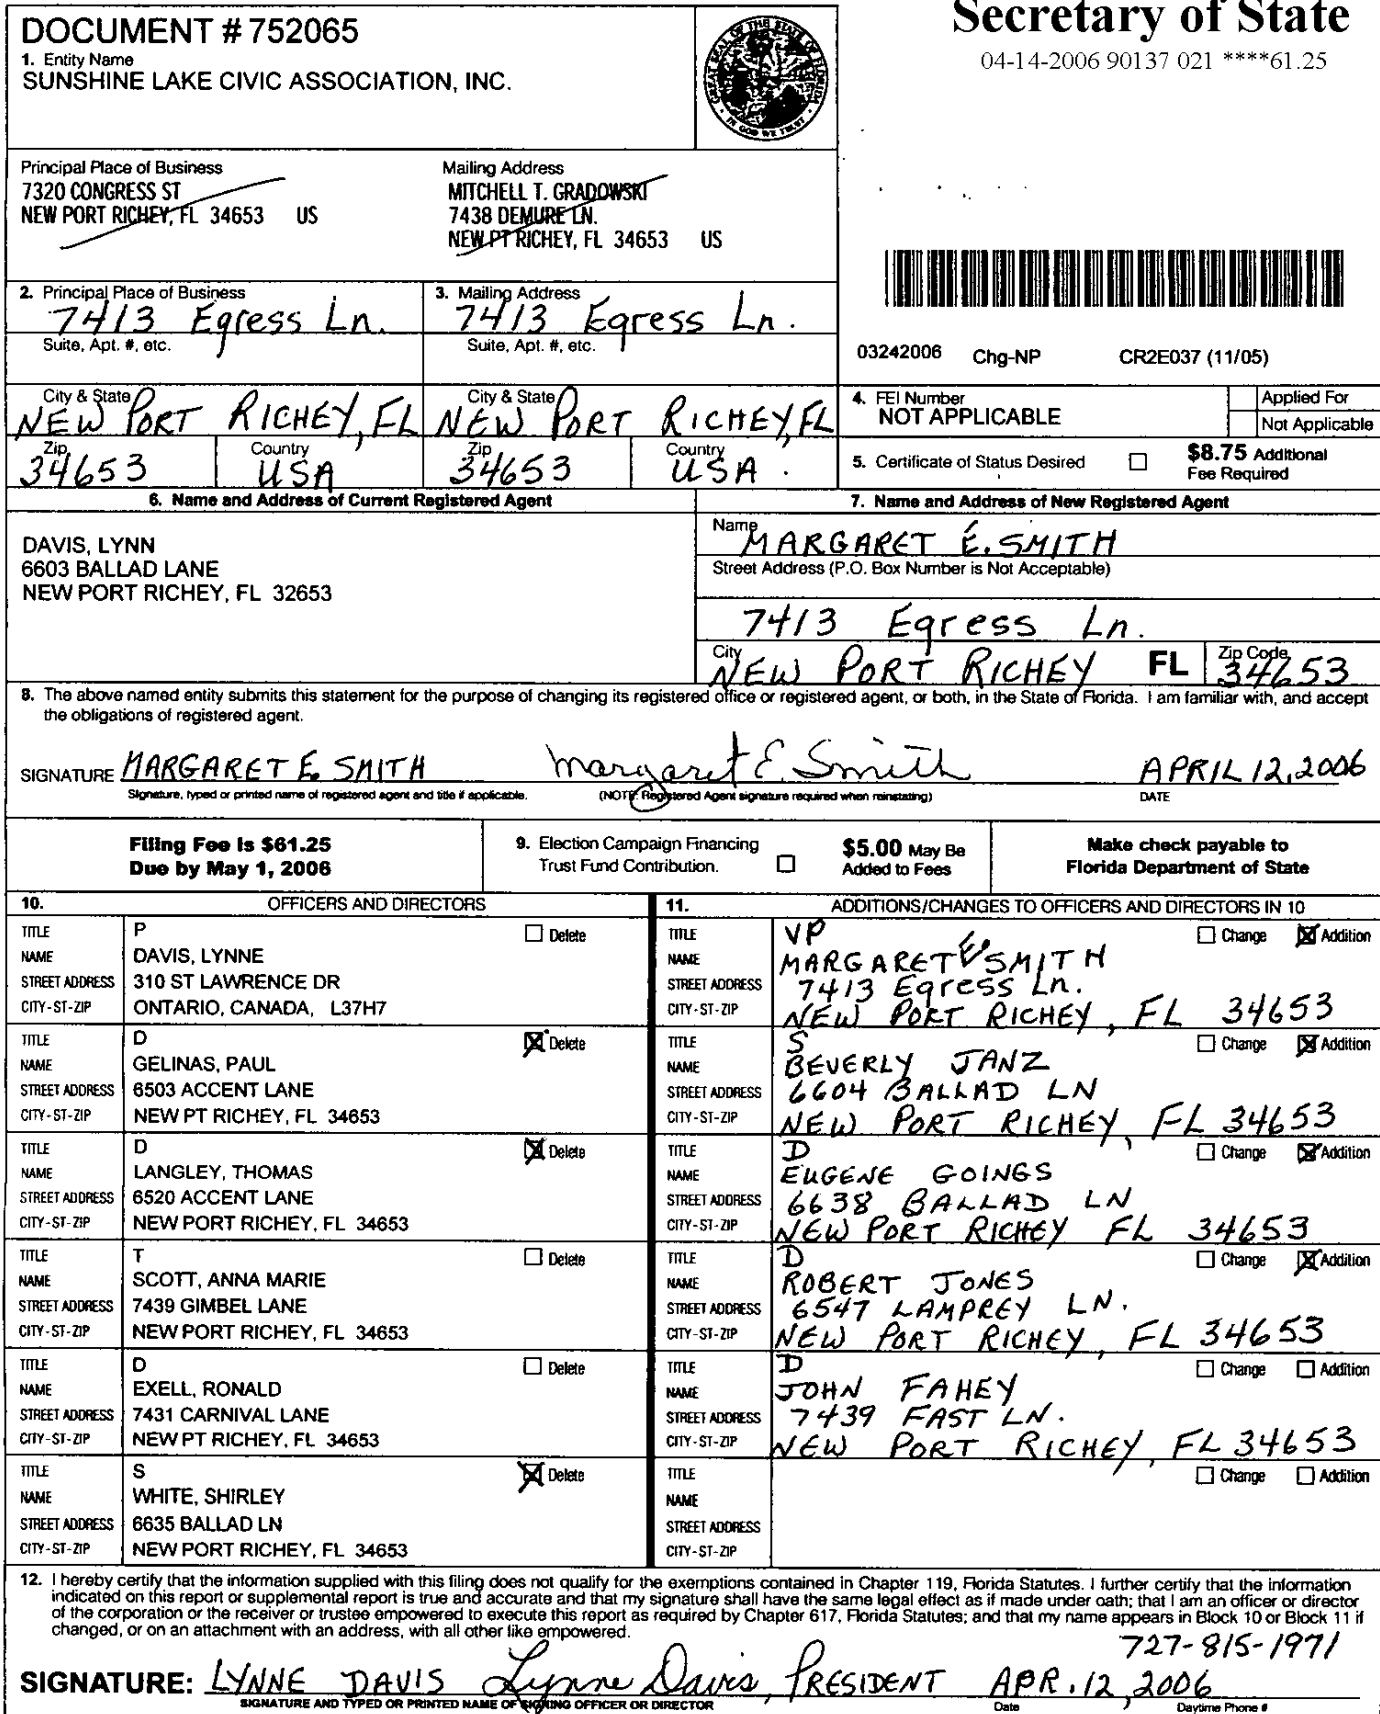 Secretary of State
04-14-2006 90137 021 ****61.25
DOCUMENT # 752065
1. Entity Name
SUNSHINE LAKE CIVIC ASSOCIATION, INC.
GREAT SEAL OF THE STATE OF FLORIDA
IN GOD WE TRUST
Principal Place of Business
7320 CONGRESS ST
NEW PORT RICHEY, FL 34653 US
Mailing Address
MITCHELL T. GRADOWSKI
7438 DEMURE LN.
NEW PT RICHEY, FL 34653 US
2. Principal Place of Business
7413 Egress Ln.
Suite, Apt. #, etc.
3. Mailing Address
7413 Egress Ln.
Suite, Apt. #, etc.
03242006 Chg-NP CR2E037 (11/05)
City & State
NEW PORT RICHEY, FL
City & State
NEW PORT RICHEY, FL
Zip
34653
Country
USA
Zip
34653
Country
USA.
4. FEI Number
NOT APPLICABLE
Applied For
Not Applicable
5. Certificate of Status Desired
$8.75 Additional
Fee Required
6. Name and Address of Current Registered Agent
DAVIS, LYNN
6603 BALLAD LANE
NEW PORT RICHEY, FL 32653
7. Name and Address of New Registered Agent
Name
MARGARET E. SMITH
Street Address (P.O. Box Number is Not Acceptable)
7413 Egress Ln.
City
NEW PORT RICHEY FL
Zip Code
34653
8. The above named entity submits this statement for the purpose of changing its registered office or registered agent, or both, in the State of Florida. I am familiar with, and accept
the obligations of registered agent.
SIGNATURE MARGARET E. SMITH Margaret E. Smith APRIL 12, 2006
Signature, typed or printed name of registered agent and title if applicable. (NOTE: Registered Agent signature required when reinstating) DATE
Filing Fee is $61.25
Due by May 1, 2006
9. Election Campaign Financing
Trust Fund Contribution.
$5.00 May Be
Added to Fees
Make check payable to
Florida Department of State
10. OFFICERS AND DIRECTORS
TITLE P Delete
NAME DAVIS, LYNNE
STREET ADDRESS 310 ST LAWRENCE DR
CITY-ST-ZIP ONTARIO, CANADA, L37H7
TITLE D Delete
NAME GELINAS, PAUL
STREET ADDRESS 6503 ACCENT LANE
CITY-ST-ZIP NEW PT RICHEY, FL 34653
TITLE D Delete
NAME LANGLEY, THOMAS
STREET ADDRESS 6520 ACCENT LANE
CITY-ST-ZIP NEW PORT RICHEY, FL 34653
TITLE T Delete
NAME SCOTT, ANNA MARIE
STREET ADDRESS 7439 GIMBEL LANE
CITY-ST-ZIP NEW PORT RICHEY, FL 34653
TITLE D Delete
NAME EXELL, RONALD
STREET ADDRESS 7431 CARNIVAL LANE
CITY-ST-ZIP NEW PT RICHEY, FL 34653
TITLE S Delete
NAME WHITE, SHIRLEY
STREET ADDRESS 6635 BALLAD LN
CITY-ST-ZIP NEW PORT RICHEY, FL 34653
11. ADDITIONS/CHANGES TO OFFICERS AND DIRECTORS IN 10
TITLE VP Change Addition
NAME MARGARET E. SMITH
STREET ADDRESS 7413 Egress Ln.
CITY-ST-ZIP NEW PORT RICHEY, FL 34653
TITLE S Change Addition
NAME BEVERLY JANZ
STREET ADDRESS 6604 BALLAD LN
CITY-ST-ZIP NEW PORT RICHEY, FL 34653
TITLE D Change Addition
NAME EUGENE GOINGS
STREET ADDRESS 6638 BALLAD LN
CITY-ST-ZIP NEW PORT RICHEY FL 34653
TITLE D Change Addition
NAME ROBERT JONES
STREET ADDRESS 6547 LAMPREY LN.
CITY-ST-ZIP NEW PORT RICHEY, FL 34653
TITLE D Change Addition
NAME JOHN FAHEY
STREET ADDRESS 7439 FAST LN.
CITY-ST-ZIP NEW PORT RICHEY, FL 34653
TITLE Change Addition
NAME
STREET ADDRESS
CITY-ST-ZIP
12. I hereby certify that the information supplied with this filing does not qualify for the exemptions contained in Chapter 119, Florida Statutes. I further certify that the information
indicated on this report or supplemental report is true and accurate and that my signature shall have the same legal effect as if made under oath; that I am an officer or director
of the corporation or the receiver or trustee empowered to execute this report as required by Chapter 617, Florida Statutes; and that my name appears in Block 10 or Block 11 if
changed, or on an attachment with an address, with all other like empowered.
727-815-1971
SIGNATURE: LYNNE DAVIS Lynne Davis, PRESIDENT APR. 12, 2006
SIGNATURE AND TYPED OR PRINTED NAME OF SIGNING OFFICER OR DIRECTOR Date Daytime Phone #